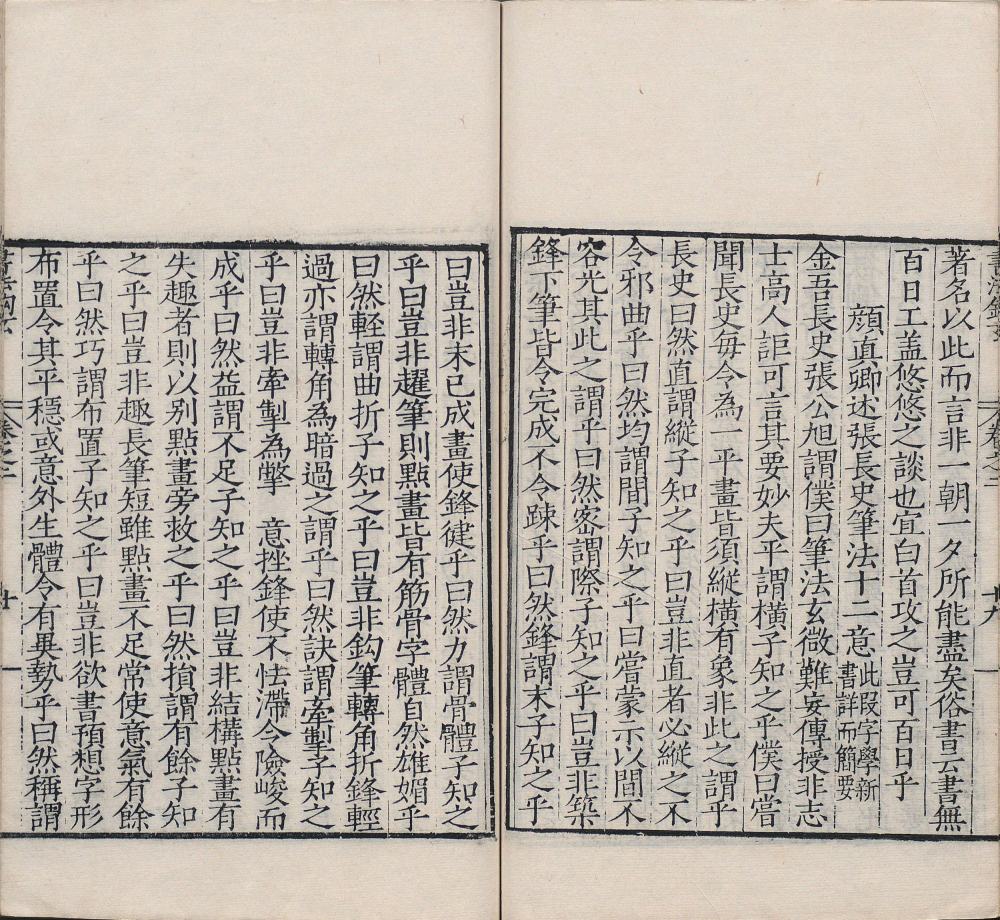 著名以此而言非一朝一夕所能盡矣俗書云書無
百日工盖悠悠之談也宜白首攻之豈可百日乎
顔眞卿述張長史筆法十二意此叚字學新書詳而簡要
金吾長史張公旭謂僕曰筆法玄微難妄傳授非志
士高人詎可言其要妙夫平謂橫子知之乎僕曰嘗
聞長史每令為一平畫皆須縱橫有象非此之謂乎
長史曰然直謂縱子知之乎曰豈非直者必縱之不
令邪曲乎曰然均謂間子知之乎曰嘗蒙示以間不
容光其此之謂乎曰然宻謂際子知之乎曰豈非築
鋒下筆皆令完成不令踈乎曰然鋒謂末子知之乎
曰豈非末已成畫使鋒健乎曰然力謂骨體子知之
乎曰豈非趯筆則點畫皆有筋骨字體自然雄媚乎
曰然輕謂曲折子知之乎曰豈非鈎筆轉角折鋒輕
過亦謂轉角為暗過之謂乎曰然訣謂牽掣子知之
乎曰豈非牽掣為撆 意挫鋒使不怯滯令險峻而
成乎曰然益謂不足子知之乎曰豈非結構點畫有
失趣者則以别點畫旁救之乎曰然損謂有餘子知
之乎曰豈非趣長筆短雖點畫不足常使意氣有餘
乎曰然巧謂布置子知之乎曰豈非欲書預想字形
布置令其平穩或意外生體令有異勢乎曰然稱謂